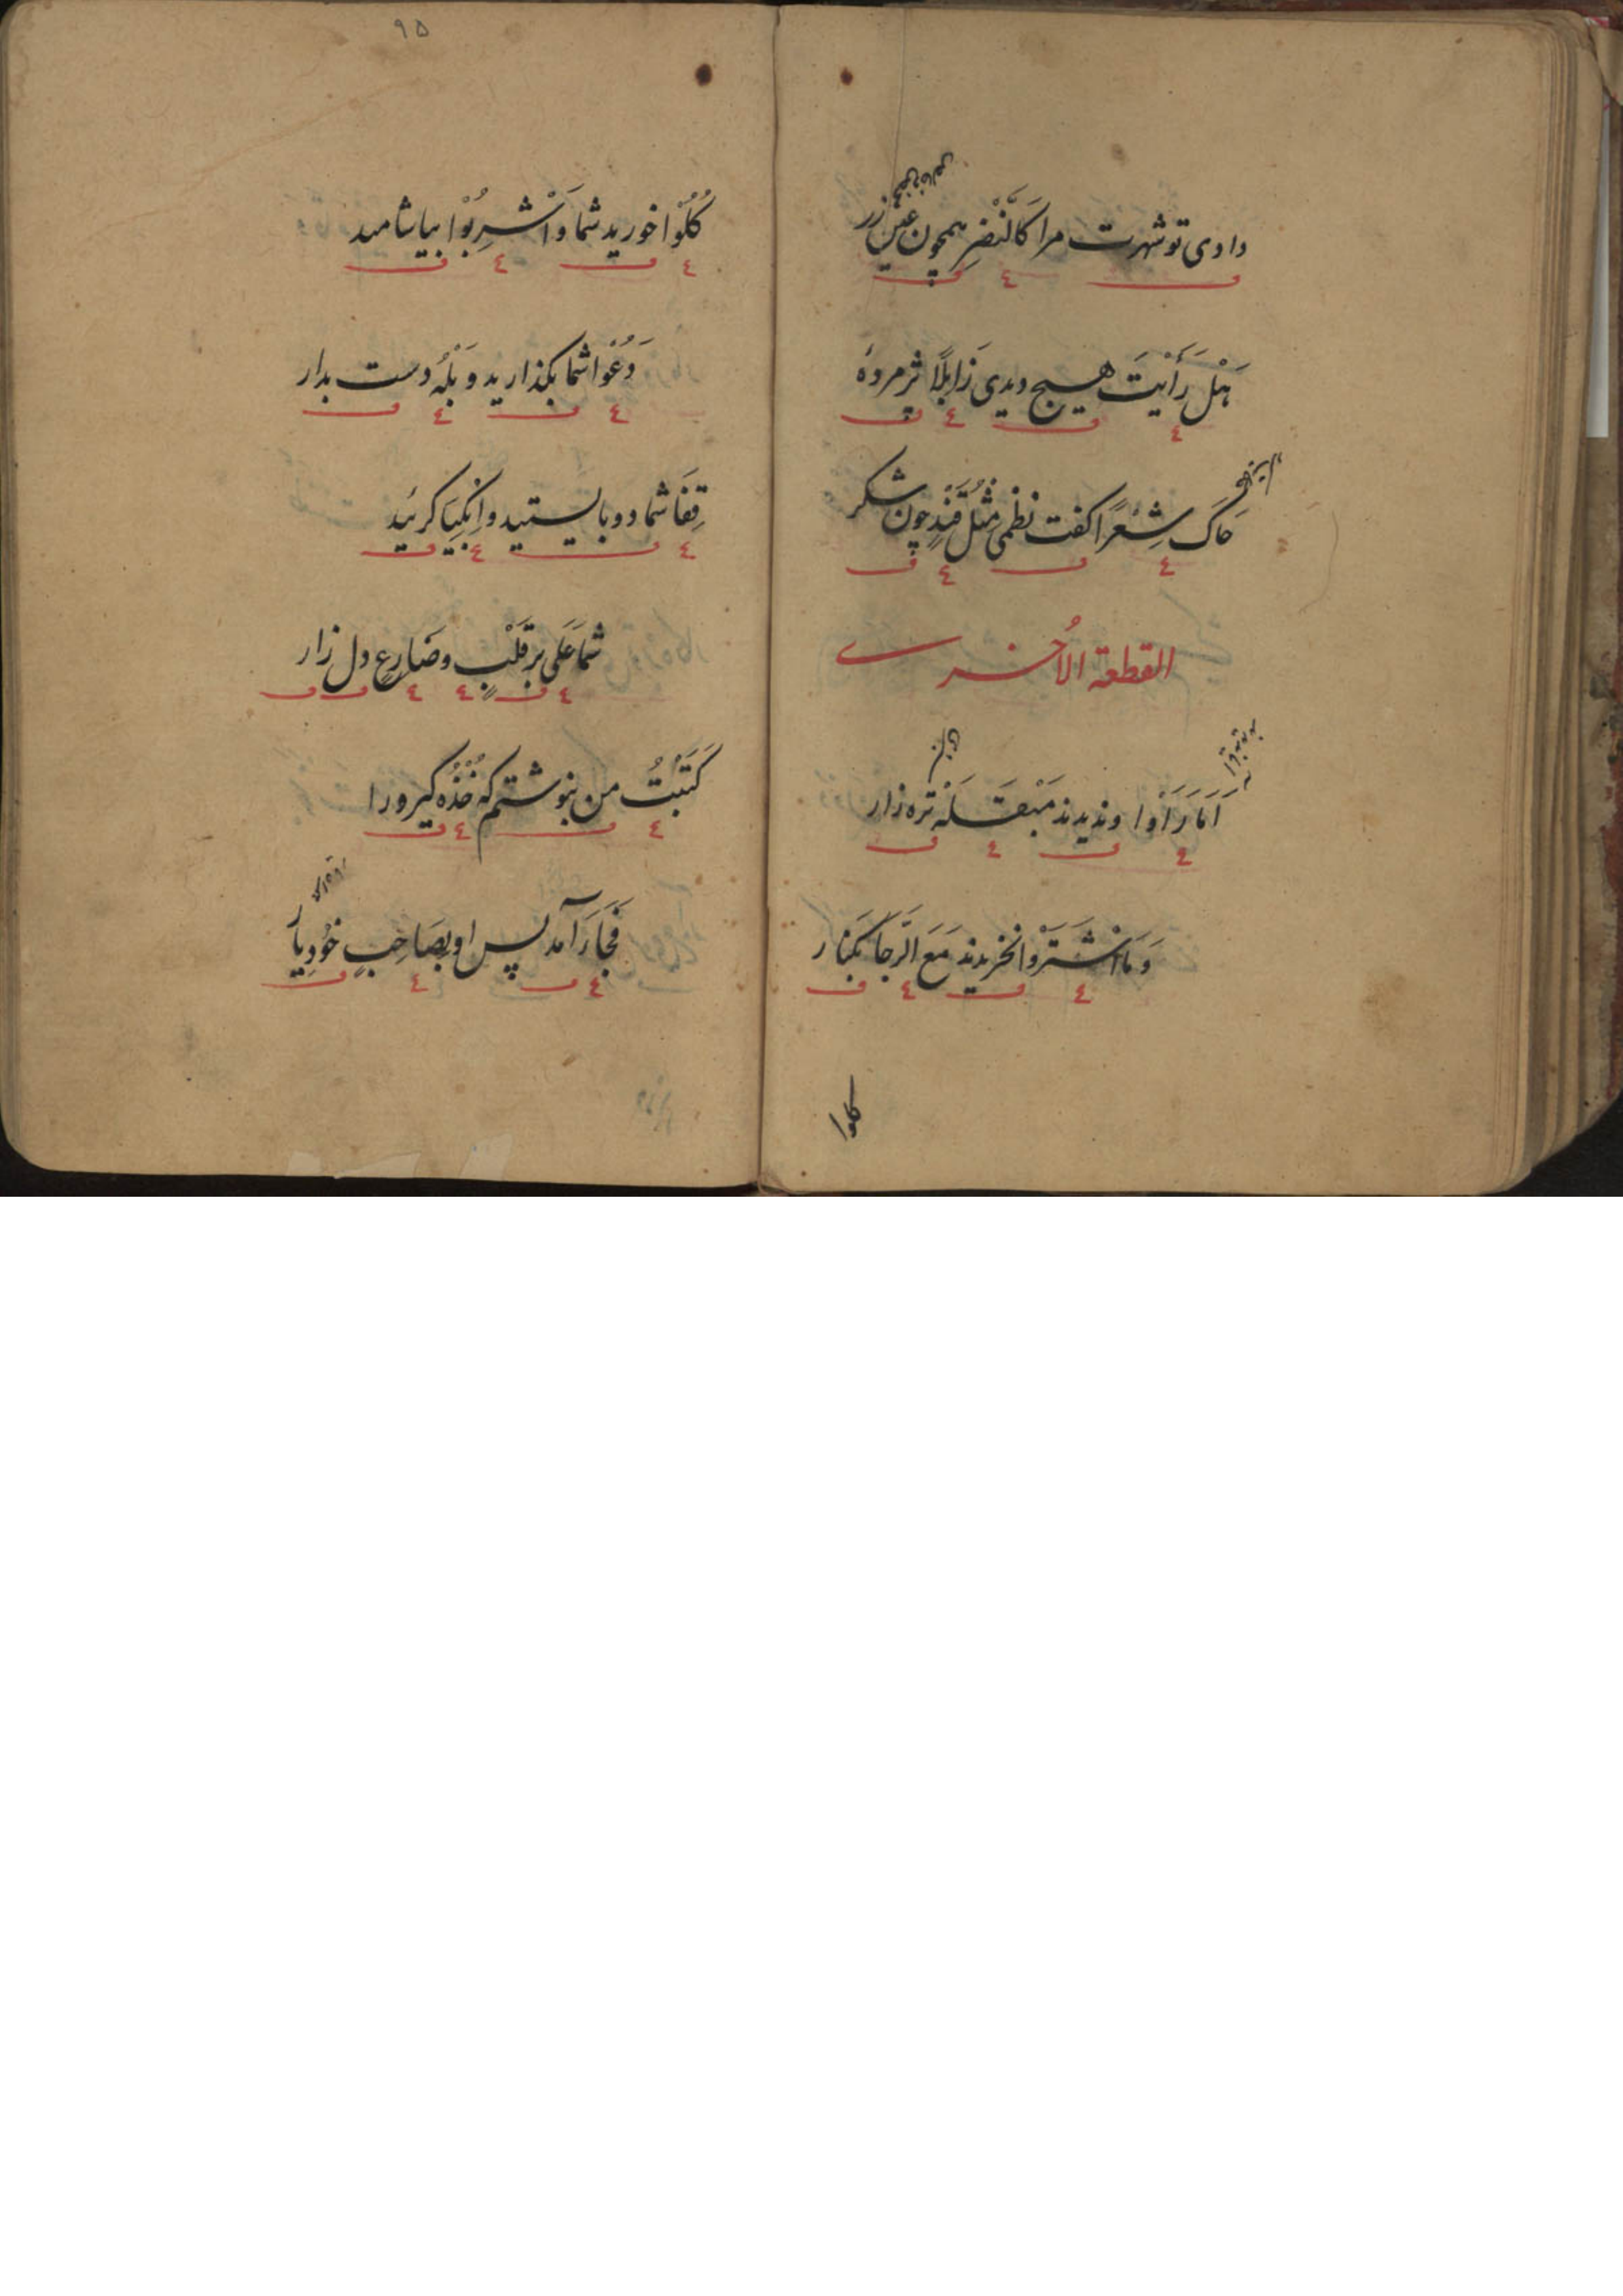 دادی تو شهرت مرا کَالنَّضْرِ همچون عین زر
هَلْ رَأَیْتَ هیچ دیدی زَابِلًا پژمردهٔ
حَاکَ شِعْرًا کفت نظمی مِثْلُ قَنْدٍ چون شکر
القطعة الاُخری
اَمَا رَاَوْا وندیدند مَبْقَلَه تره زار
وَمَا اشْتَرَوْا نخریدند مَعَ الرَّجَا بکنار
کلوا
۹۵
کُلُوْا خورید شما وَاشْرِبُوْا بیاشامید
دَعُوْا شما بکذارید و بَلْهُ دست بدار
قِفَا شما دو بایستید وابْکِیَا کرئید
شما عَلَی بر قَلْبٍ وضَارِعٍ دل زار
کَتَبْتُ من بنوشتم که خُذْهُ کیر ورا
فَجَاءَ آمد پس او بصَاحِبٍ خُودِیار